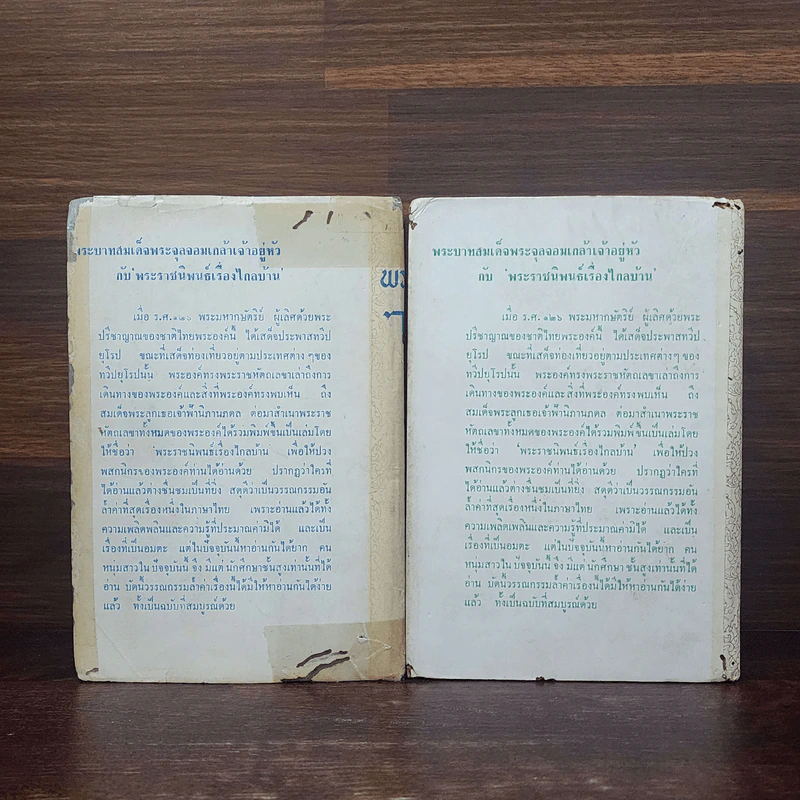 พระบาทสมเด็จพระจุลจอมเกล้าเจ้าอยู่หัว
กับ 'พระราชนิพนธ์เรื่องไกลบ้าน'
เมื่อ ร.ศ.๑๒๖ พระมหากษัตริย์ ผู้เลิศด้วยพระ
ปรีชาญาณของชาติไทยพระองค์นี้ ได้เสด็จประพาสทวีป
ยุโรป ขณะที่เสด็จท่องเที่ยวอยู่ตามประเทศต่าง ๆ ของ
ทวีปยุโรปนั้น พระองค์ทรงพระราชหัตถเลขาเล่าถึงการ
เดินทางของพระองค์และสิ่งที่พระองค์ทรงพบเห็น ถึง
สมเด็จพระลูกเธอเจ้าฟ้านิภานภดล ต่อมาสำเนาพระราช
หัตถเลขาทั้งหมดของพระองค์ได้รวมพิมพ์ขึ้นเป็นเล่มโดย
ให้ชื่อว่า 'พระราชนิพนธ์เรื่องไกลบ้าน' เพื่อให้ปวง
พสกนิกรของพระองค์ท่านได้อ่านด้วย ปรากฏว่าใครที่
ได้อ่านแล้วต่างชื่นชมเป็นที่ยิ่ง สดุดีว่าเป็นวรรณกรรมอัน
ล้ำค่าที่สุดเรื่องหนึ่งในภาษาไทย เพราะอ่านแล้วได้ทั้ง
ความเพลิดเพลินและความรู้ที่ประมาณค่ามิได้ และเป็น
เรื่องที่เป็นอมตะ แต่ในปัจจุบันนี้หาอ่านกันได้ยาก คน
หนุ่มสาวในปัจจุบันนี้ จึงมีแต่นักศึกษาชั้นสูงเท่านั้นที่ได้
อ่าน บัดนี้วรรณกรรมล้ำค่าเรื่องนี้ได้มีให้หาอ่านกันได้ง่าย
แล้ว ทั้งเป็นฉบับที่สมบูรณ์ด้วย
พระบาทสมเด็จพระจุลจอมเกล้าเจ้าอยู่หัว
กับ 'พระราชนิพนธ์เรื่องไกลบ้าน'
เมื่อ ร.ศ.๑๒๖ พระมหากษัตริย์ ผู้เลิศด้วยพระ
ปรีชาญาณของชาติไทยพระองค์นี้ ได้เสด็จประพาสทวีป
ยุโรป ขณะที่เสด็จท่องเที่ยวอยู่ตามประเทศต่าง ๆ ของ
ทวีปยุโรปนั้น พระองค์ทรงพระราชหัตถเลขาเล่าถึงการ
เดินทางของพระองค์และสิ่งที่พระองค์ทรงพบเห็น ถึง
สมเด็จพระลูกเธอเจ้าฟ้านิภานภดล ต่อมาสำเนาพระราช
หัตถเลขาทั้งหมดของพระองค์ได้รวมพิมพ์ขึ้นเป็นเล่มโดย
ให้ชื่อว่า 'พระราชนิพนธ์เรื่องไกลบ้าน' เพื่อให้ปวง
พสกนิกรของพระองค์ท่านได้อ่านด้วย ปรากฏว่าใครที่
ได้อ่านแล้วต่างชื่นชมเป็นที่ยิ่ง สดุดีว่าเป็นวรรณกรรมอัน
ล้ำค่าที่สุดเรื่องหนึ่งในภาษาไทย เพราะอ่านแล้วได้ทั้ง
ความเพลิดเพลินและความรู้ที่ประมาณค่ามิได้ และเป็น
เรื่องที่เป็นอมตะ แต่ในปัจจุบันนี้หาอ่านกันได้ยาก คน
หนุ่มสาวในปัจจุบันนี้ จึงมีแต่นักศึกษาชั้นสูงเท่านั้นที่ได้
อ่าน บัดนี้วรรณกรรมล้ำค่าเรื่องนี้ได้มีให้หาอ่านกันได้ง่าย
แล้ว ทั้งเป็นฉบับที่สมบูรณ์ด้วย